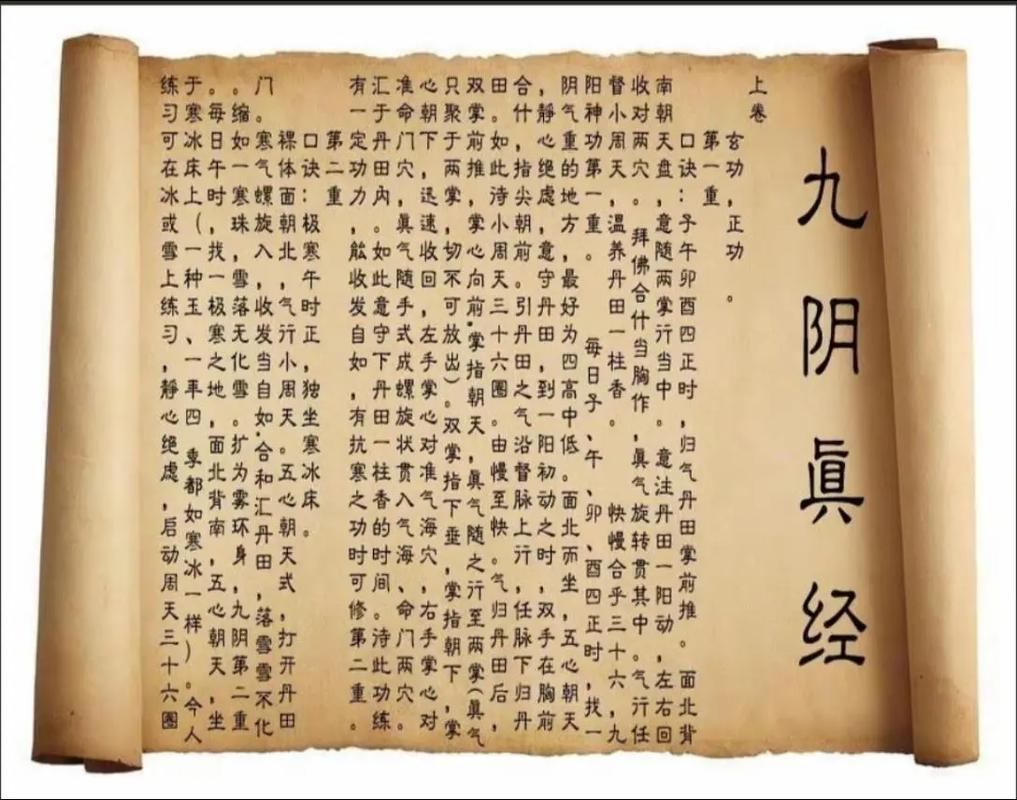 九阴眞经
上卷
玄功，正功。
第一重
口诀：子午卯酉四正时，归气丹田掌前推。面北背
南朝天盘，意随两掌行当中。意注丹田一阳动，左右回
收对两穴。拜佛合什当胸作，眞气旋转贯其中。气行任
督小周天，温养丹田一柱香。快慢合乎三十六，九
阳神功第一重。每日子、午、卯、酉四正时，找一
阴气重的地方，最好为四高中低。面北而坐，五心朝天
，静心绝虑，意守丹田，到一阳初动之时，双手在胸前
合什，指尖朝前。引丹田之气沿督脉上行，任脉下归丹
田。如此待小周天三十六圈。由慢至快。气归丹田后，
双掌前推，掌心向前.掌指朝天，眞气随之行至两掌(眞气
只聚于两掌，切不可放出)。双掌指下垂，掌指朝下，掌
心朝下，迅速收回，左手掌心对准气海穴，右手掌心对
准命门穴，眞气随手式成螺旋状贯入气海、命门两穴。
汇于丹田内。如此意守下丹田一柱香的时间。待此功练
有一定功力，能收发自如，有抗寒之功时可修第二重。
第二重
口诀：极寒午时正，独坐寒冰床。
裸体面朝北，气行小周天。五心朝天式，打开丹田
门。寒气螺旋入，收发当自如.合和汇丹田，落雪雪不化
。缩如一寒珠，雪落无化雪。扩为雾环身，九阴第二重
。每日午时，找一极寒之地，面北背南，五心朝天，坐
于寒冰床上(一种玉、一年四季都如寒冰一样)。今人
练习可在冰或雪上练习，静心绝虑，启动周天三十六圈